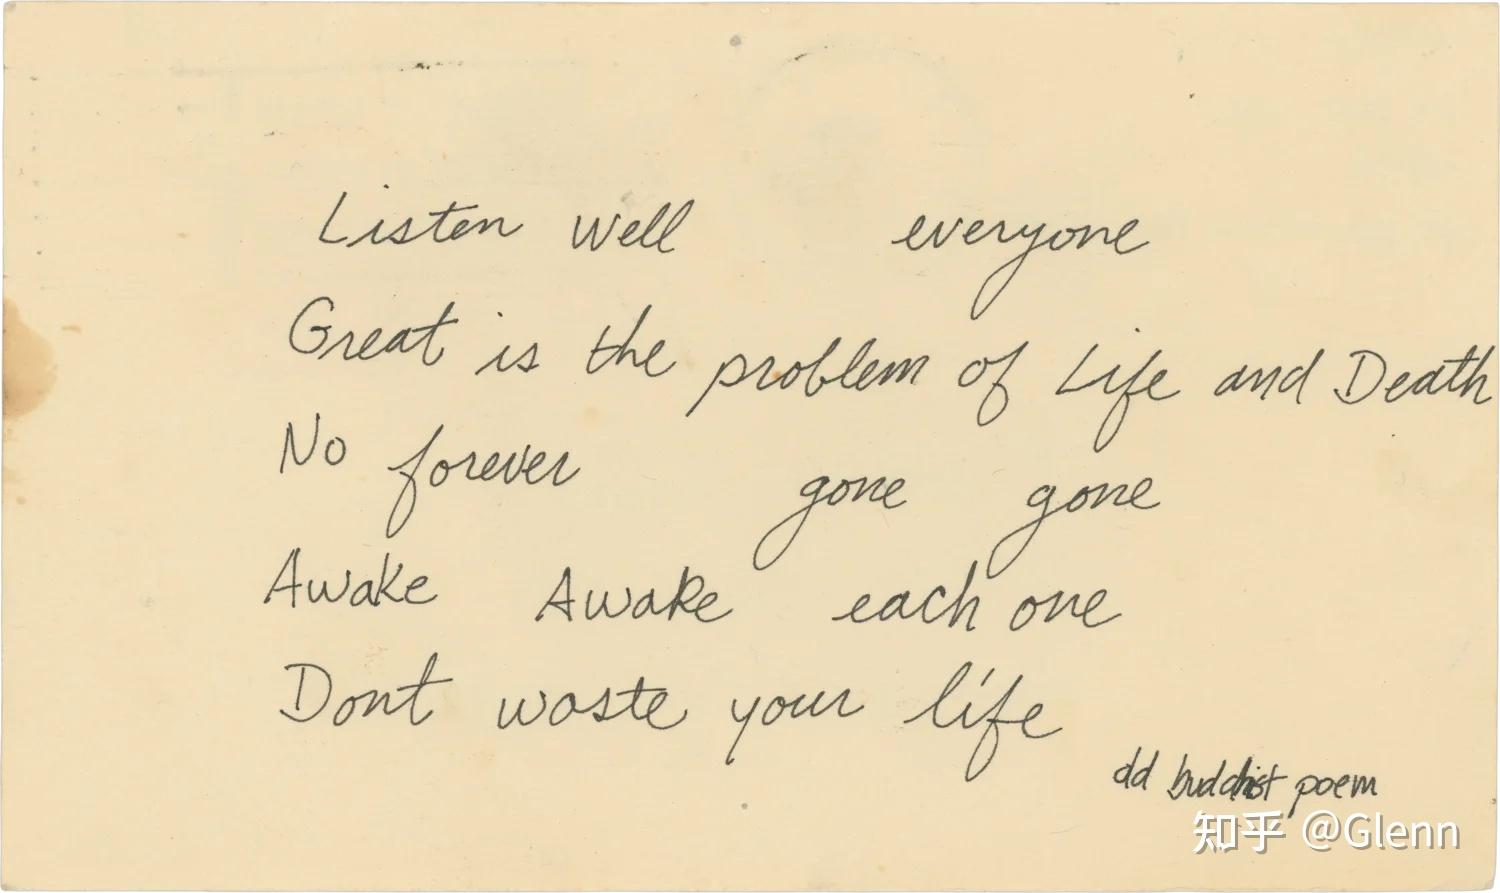 Listen well everyone
Great is the problem of Life and Death
No forever gone gone
Awake Awake each one
Dont waste your life
dd buddhist poem
知乎 @Glenn